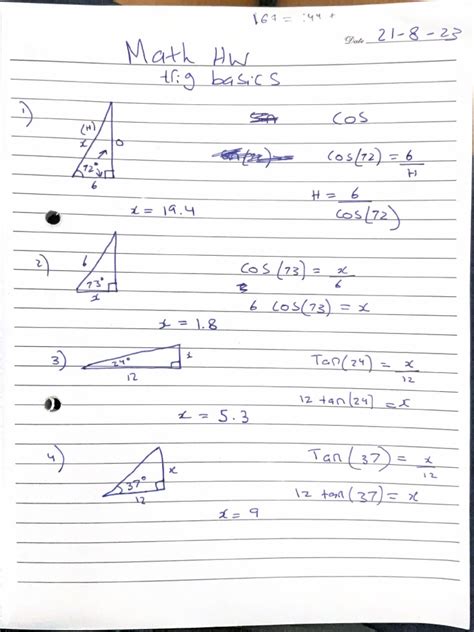 Date 21-8-23
Math HW
trig basics
1)
(H)
x
O
72°
6
COS
cos(72) = 6/H
H = 6/cos(72)
x = 19.4
2)
6
73°
x
cos(73) = x/6
6 cos(73) = x
x = 1.8
3)
24°
x
12
Tan(24) = x/12
12 tan(24) = x
x = 5.3
4)
37°
x
12
Tan(37) = x/12
12 tan(37) = x
x = 9